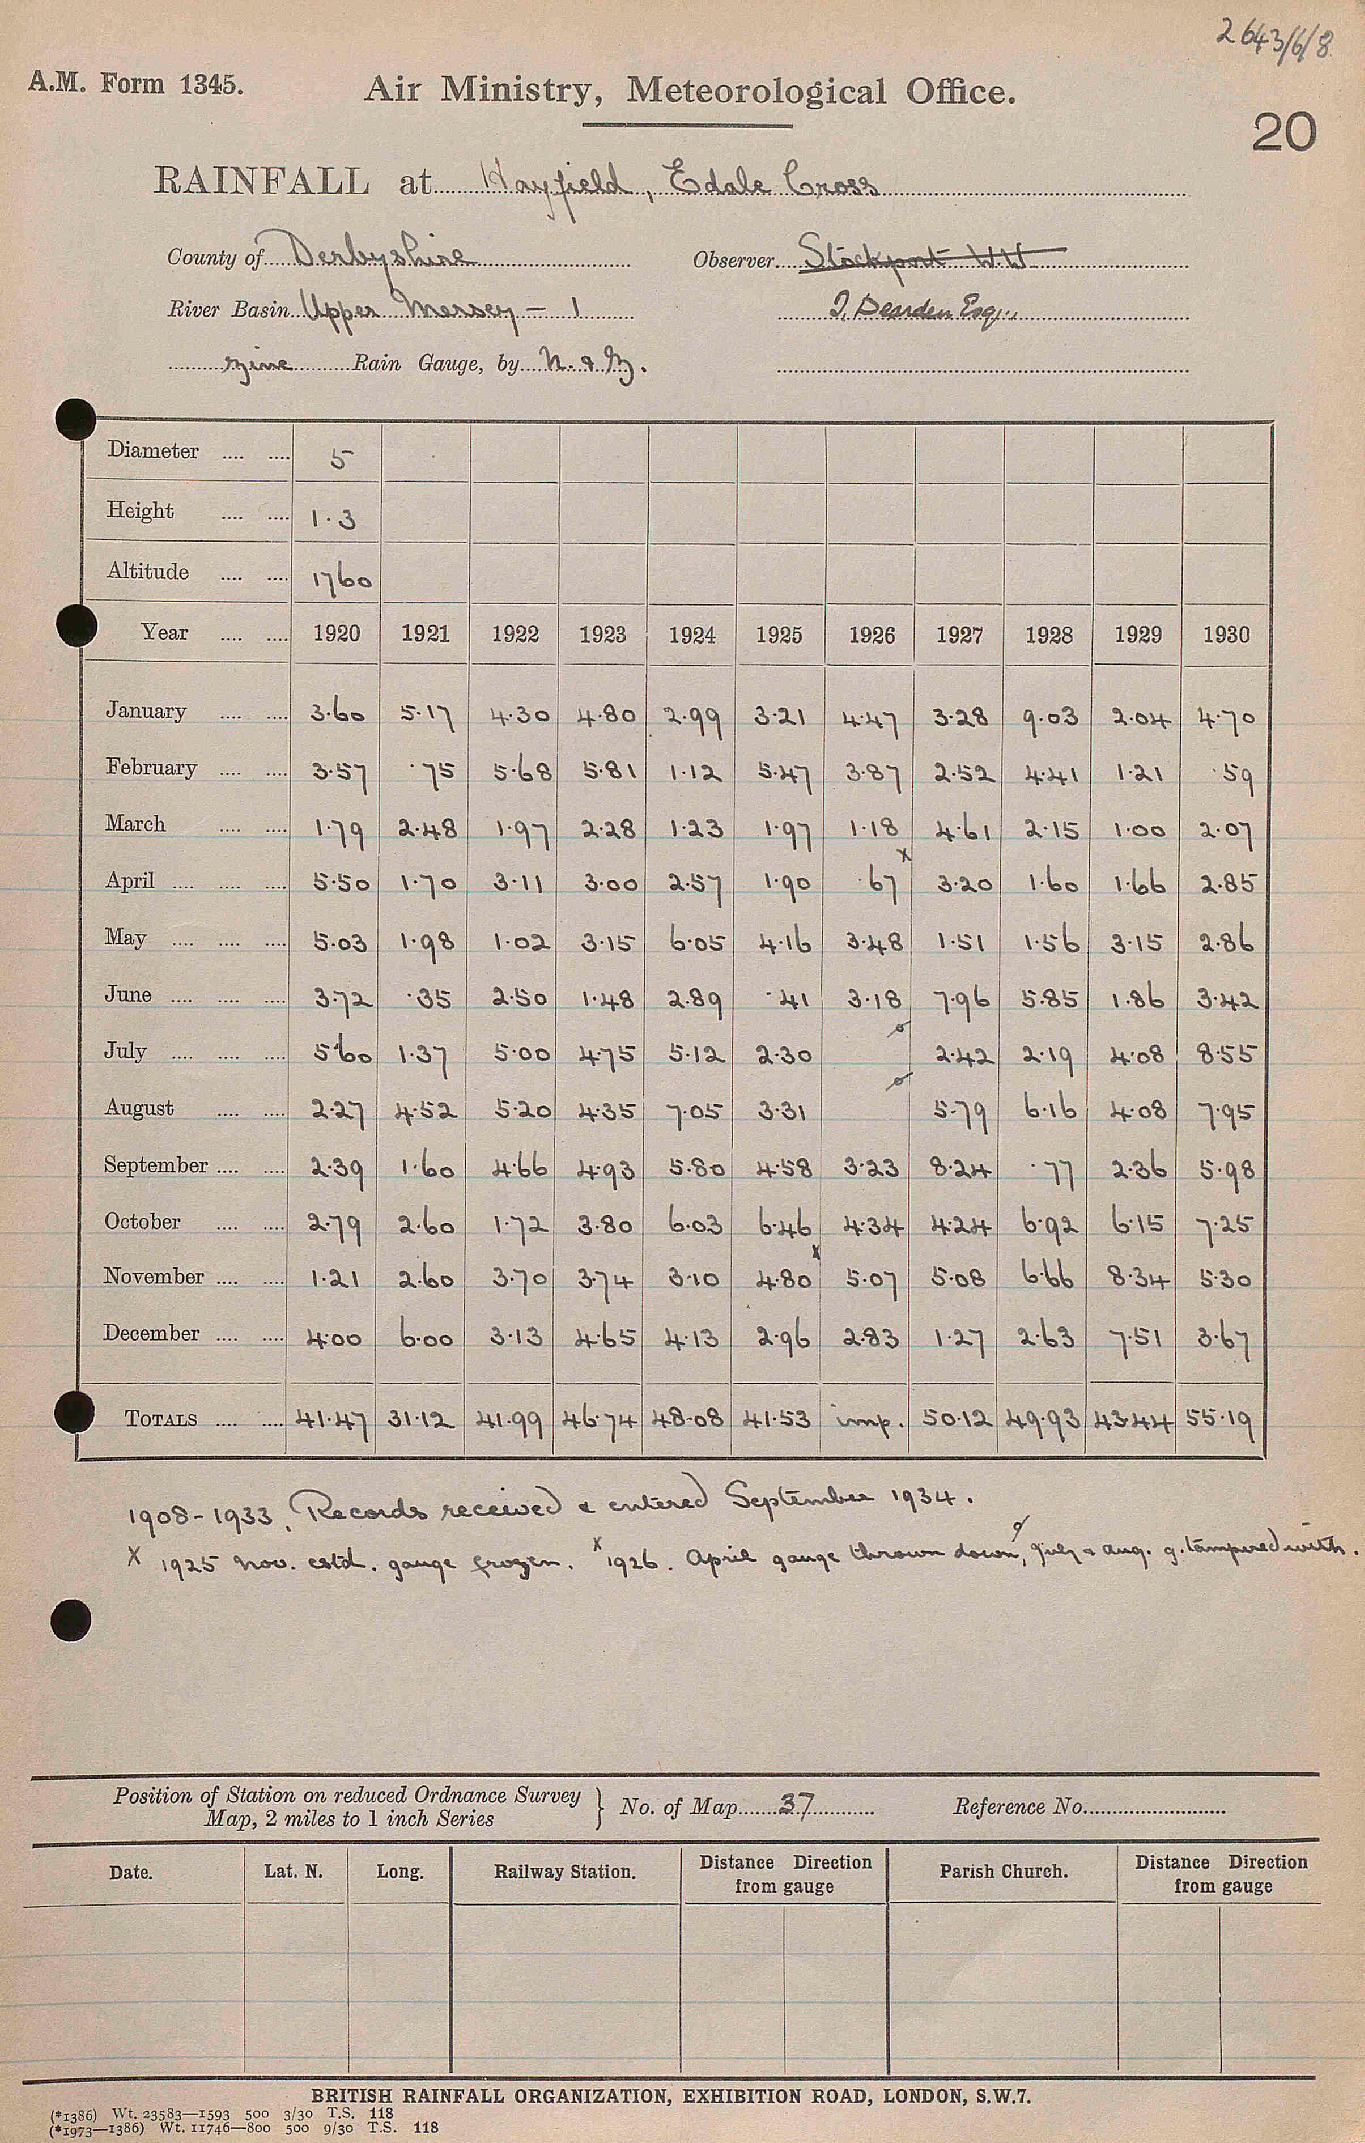 2643/6/8
A.M. Form 1345. Air Ministry, Meteorological Office.
20
RAINFALL at Hayfield, Edale Cross
County of Derbyshire Observer Stockport W.W.
River Basin Upper Mersey - 1 J. Dearden Esq.,
zinc Rain Gauge, by N. & Z.
Diameter .... .... 5
Height .... .... 1.3
Altitude .... .... 1760
Year .... .... 1920 1921 1922 1923 1924 1925 1926 1927 1928 1929 1930
January .... .... 3.60 5.17 4.30 4.80 2.99 3.21 4.47 3.28 9.03 2.04 4.70
February .... .... 3.57 .75 5.68 5.81 1.12 5.47 3.87 2.52 4.41 1.21 .59
March .... .... 1.79 2.48 1.97 2.28 1.23 1.97 1.18 4.61 2.15 1.00 2.07
April .... .... .... 5.50 1.70 3.11 3.00 2.57 1.90 .67 x 3.20 1.60 1.66 2.85
May .... .... .... 5.03 1.98 1.02 3.15 6.05 4.16 3.48 1.51 1.56 3.15 2.86
June .... .... .... 3.72 .35 2.50 1.48 2.89 .41 3.18 7.96 5.85 1.86 3.42
July .... .... .... 5.60 1.37 5.00 4.75 5.12 2.30 ø 2.42 2.19 4.08 8.55
August .... .... 2.27 4.52 5.20 4.35 7.05 3.31 ø 5.79 6.16 4.08 7.95
September .... .... 2.39 1.60 4.66 4.93 5.80 4.58 3.23 8.24 .77 2.36 5.98
October .... .... 2.79 2.60 1.72 3.80 6.03 6.46 4.34 4.24 6.92 6.15 7.25
November .... .... 1.21 2.60 3.70 3.74 3.10 4.80 x 5.07 5.08 6.66 8.34 5.30
December .... .... 4.00 6.00 3.13 4.65 4.13 2.96 2.83 1.27 2.63 7.51 3.67
TOTALS .... .... 41.47 31.12 41.99 46.74 48.08 41.53 imp. 50.12 49.93 43.44 55.19
1908-1933, Records received & entered September 1934.
x 1925 Nov. estd. gauge frozen. x 1926. April gauge thrown down, ø July & Aug. g. tampered with.
Position of Station on reduced Ordnance Survey
Map, 2 miles to 1 inch Series } No. of Map 37 Reference No.
Date. Lat. N. Long. Railway Station. Distance Direction from gauge Parish Church. Distance Direction from gauge
BRITISH RAINFALL ORGANIZATION, EXHIBITION ROAD, LONDON, S.W.7.
(*1386) Wt. 23583—1593 500 3/30 T.S. 118
(*1973—1386) Wt. 11746—800 500 9/30 T.S. 118